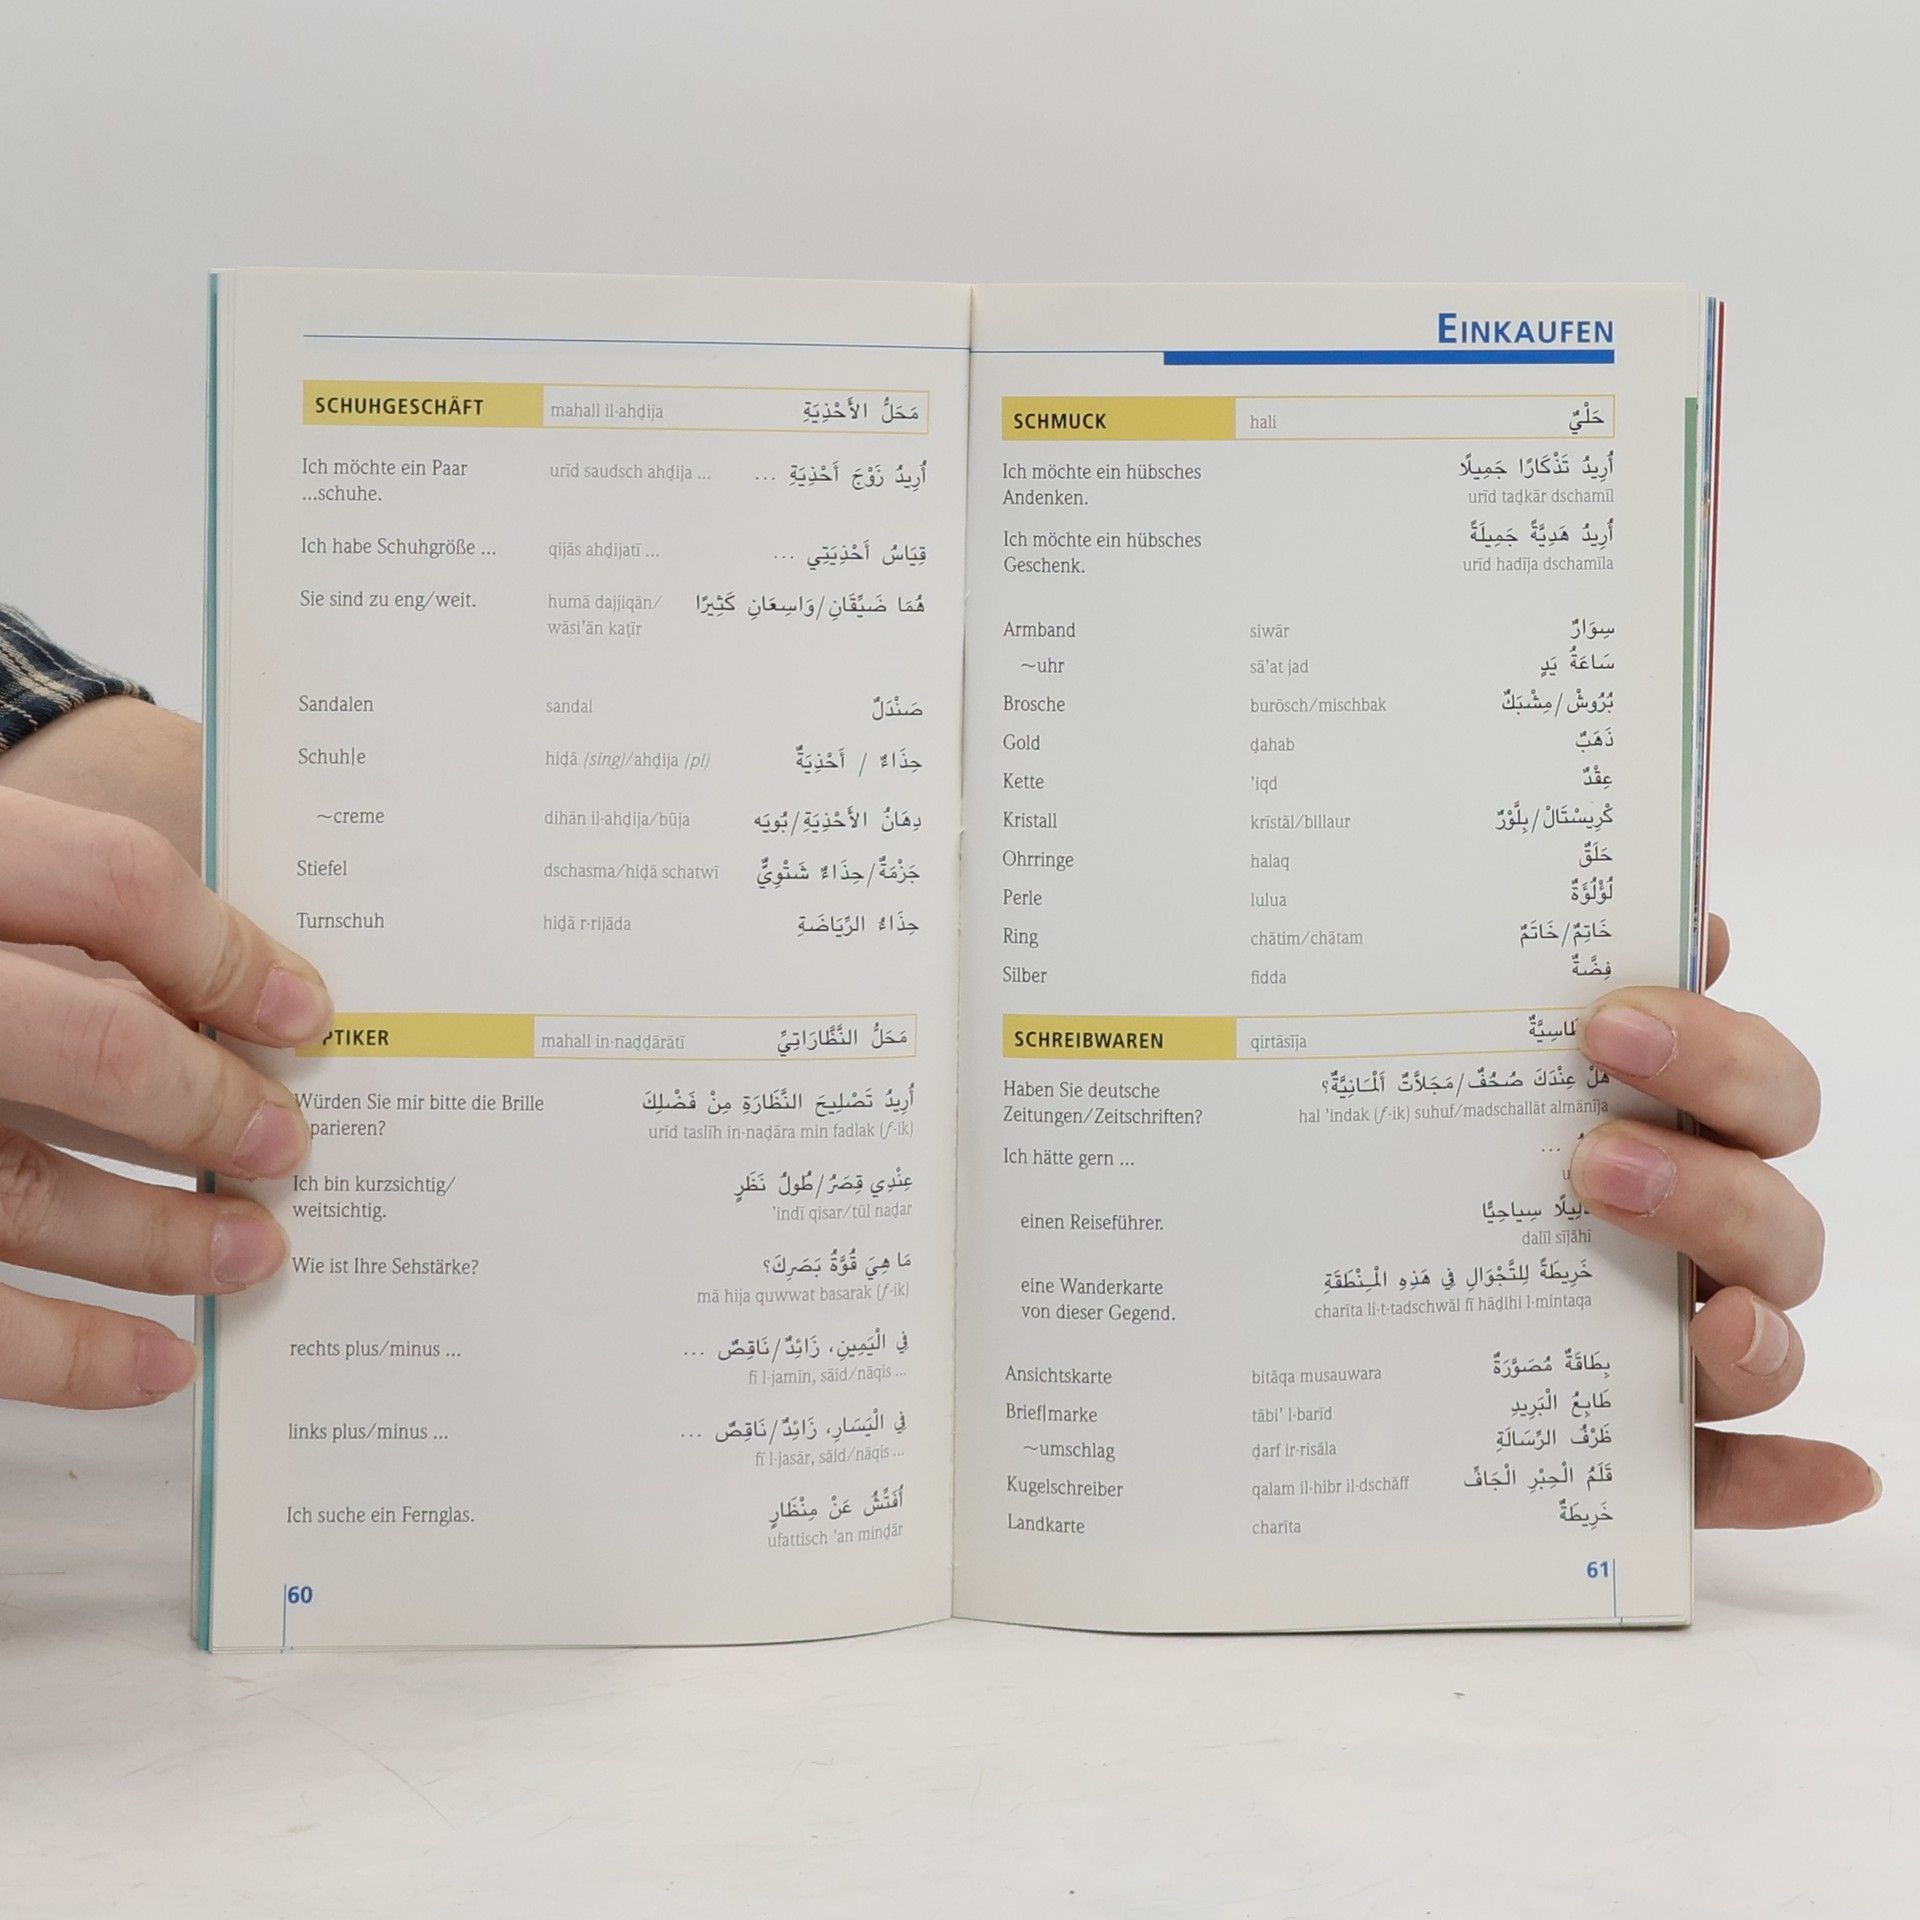 SCHUHGESCHÄFT mahall il-ahḍija مَحَلُّ الأَحْذِيَةِ
Ich möchte ein Paar urīd saudsch ahḍija ... أُرِيدُ زَوْجَ أَحْذِيَةٍ ...
...schuhe.
Ich habe Schuhgröße ... qijās ahḍijatī ... قِيَاسُ أَحْذِيَتِي ...
Sie sind zu eng/weit. humā dajjiqān/ هُمَا ضَيِّقَانِ/وَاسِعَانِ كَثِيرًا
wāsi'ān kaṭīr
Sandalen sandal صَنْدَلٌ
Schuh|e hiḍā (sing)/ahḍija (pl) حِذَاءٌ / أَحْذِيَةٌ
~creme dihān il-ahḍija/būja دِهَانُ الأَحْذِيَةِ/بُويَه
Stiefel dschasma/hiḍā schatwī جَزْمَةٌ/حِذَاءٌ شَتْوِيٌّ
Turnschuh hiḍā r-rijāda حِذَاءُ الرِّيَاضَةِ
PTIKER mahall in-naḍḍārātī مَحَلُّ النَّظَّارَاتِيِّ
Würden Sie mir bitte die Brille أُرِيدُ تَصْلِيحَ النَّظَارَةِ مِنْ فَضْلِكَ
parieren? urīd taslīh in-naḍāra min fadlak (f -ik)
Ich bin kurzsichtig/ عِنْدِي قِصَرُ/طُولُ نَظَرٍ
weitsichtig. 'indī qisar/tūl naḍar
Wie ist Ihre Sehstärke? مَا هِيَ قُوَّةُ بَصَرِكَ؟
mā hija quwwat basarak (f -ik)
rechts plus/minus ... فِي الْيَمِينِ، زَائِدٌ/نَاقِصٌ ...
fī l-jamīn, sāid/nāqis ...
links plus/minus ... فِي الْيَسَارِ، زَائِدٌ/نَاقِصٌ ...
fī l-jasār, sāid/nāqis ...
Ich suche ein Fernglas. أُفَتِّشُ عَنْ مِنْظَارٍ
ufattisch 'an minḍār
60
EINKAUFEN
SCHMUCK hali حَلْيٌ
Ich möchte ein hübsches أُرِيدُ تَذْكَارًا جَمِيلًا
Andenken. urīd taḍkār dschamīl
Ich möchte ein hübsches أُرِيدُ هَدِيَّةً جَمِيلَةً
Geschenk. urīd hadīja dschamīla
Armband siwār سِوَارٌ
~uhr sā'at jad سَاعَةُ يَدٍ
Brosche burōsch/mischbak بُرُوشْ/مِشْبَكٌ
Gold ḍahab ذَهَبٌ
Kette 'iqd عِقْدٌ
Kristall krīstāl/billaur كْرِيسْتَالْ/بِلَّوْرٌ
Ohrringe halaq حَلَقٌ
Perle lulua لُؤْلُؤَةٌ
Ring chātim/chātam خَاتِمٌ/خَاتَمٌ
Silber fidda فِضَّةٌ
SCHREIBWAREN qirtāsīja
Haben Sie deutsche هَلْ عِنْدَكَ صُحُفٌ/مَجَلاَّتٌ أَلْمَانِيَّةٌ؟
Zeitungen/Zeitschriften? hal 'indak (f -ik) suhuf/madschallāt almānīja
Ich hätte gern ... ...
einen Reiseführer. سِيَاحِيًّا
dalīl sījāhī
eine Wanderkarte خَرِيطَةً لِلتَّجْوَالِ فِي هَذِهِ الْمِنْطَقَةِ
von dieser Gegend. charīta li-t-tadschwāl fī hāḍihi l-mintaqa
Ansichtskarte bitāqa musauwara بِطَاقَةٌ مُصَوَّرَةٌ
Brief|marke tābi' l-barīd طَابِعُ الْبَرِيدِ
~umschlag ḍarf ir-risāla ظَرْفُ الرِّسَالَةِ
Kugelschreiber qalam il-hibr il-dschāff قَلَمُ الْحِبْرِ الْجَافِّ
Landkarte charīta خَرِيطَةٌ
61